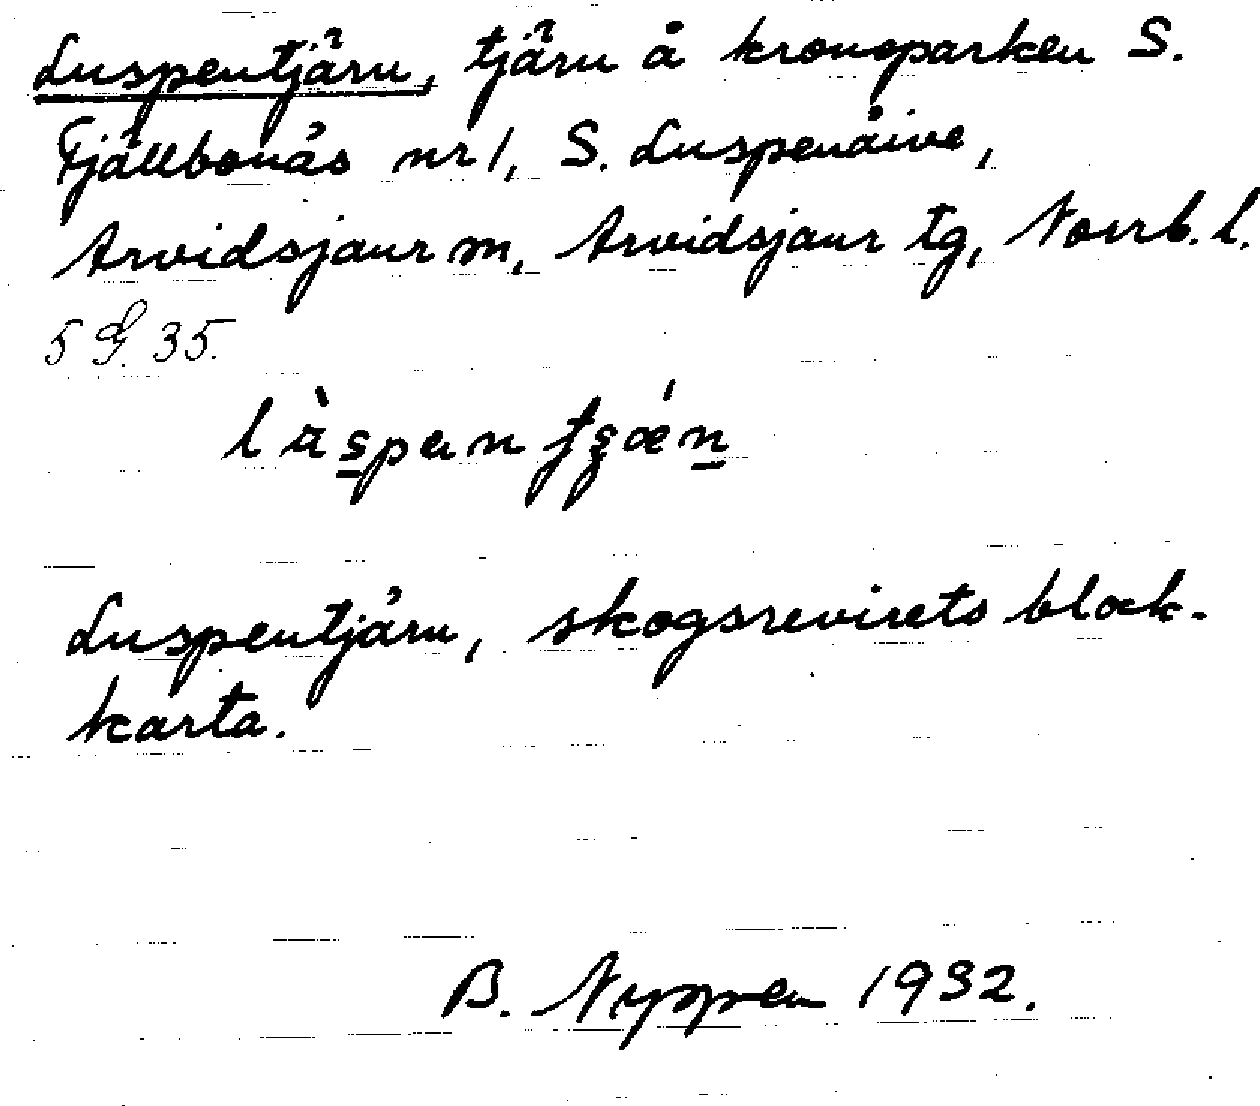 Luspentjärn, tjärn å kronoparken S.
Fjällbonäs nr 1, S. Luspenåive,
Arvidsjaur m, Arvidsjaur tg, Norrb. l.
35.
Luspentjärn, skogsrevirets block-
karta.
B. Nyppen 1932.